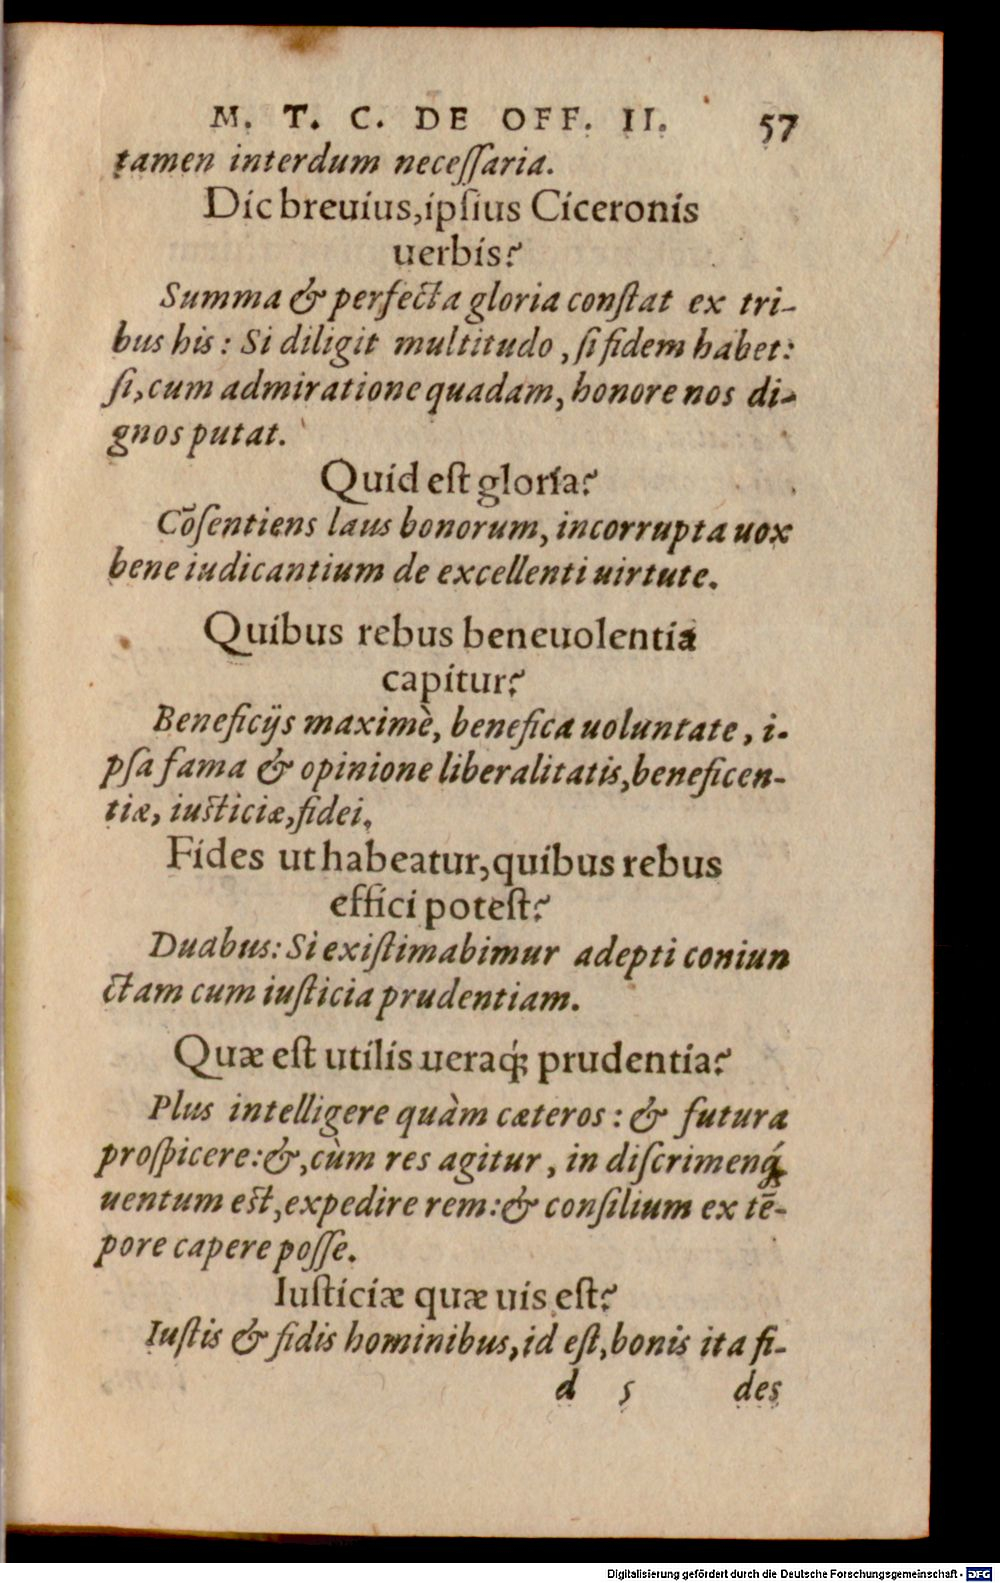 M. T. C. DE OFF. II. 57
tamen interdum neceſſaria.
Dic breuius,ipſius Ciceronis
uerbis?
Summa & perfecta gloria conſtat ex tri-
bus his: Si diligit multitudo, ſi fidem habet:
ſi, cum admiratione quadam, honore nos di-
gnos putat.
Quid eſt gloria?
Cõſentiens laus bonorum, incorrupta uox
bene iudicantium de excellenti uirtute.
Quibus rebus beneuolentia
capitur?
Beneficijs maximè, benefica uoluntate, i-
pſa fama & opinione liberalitatis, beneficen-
tiæ, iusticiæ, fidei.
Fides ut habeatur, quibus rebus
effici poteſt?
Duabus: Si exiſtimabimur adepti coniun
ctam cum iuſticia prudentiam.
Quæ eſt utilis ueraq́; prudentia?
Plus intelligere quàm cæteros: & futura
proſpicere: &, cùm res agitur, in diſcrimenq́;
uentum est, expedire rem: & conſilium ex tẽ-
pore capere poſſe.
Iuſticiæ quæ uis eſt?
Iuſtis & fidis hominibus, id eſt, bonis ita fi-
d 5 des
Digitalisierung gefördert durch die Deutsche Forschungsgemeinschaft - DFG